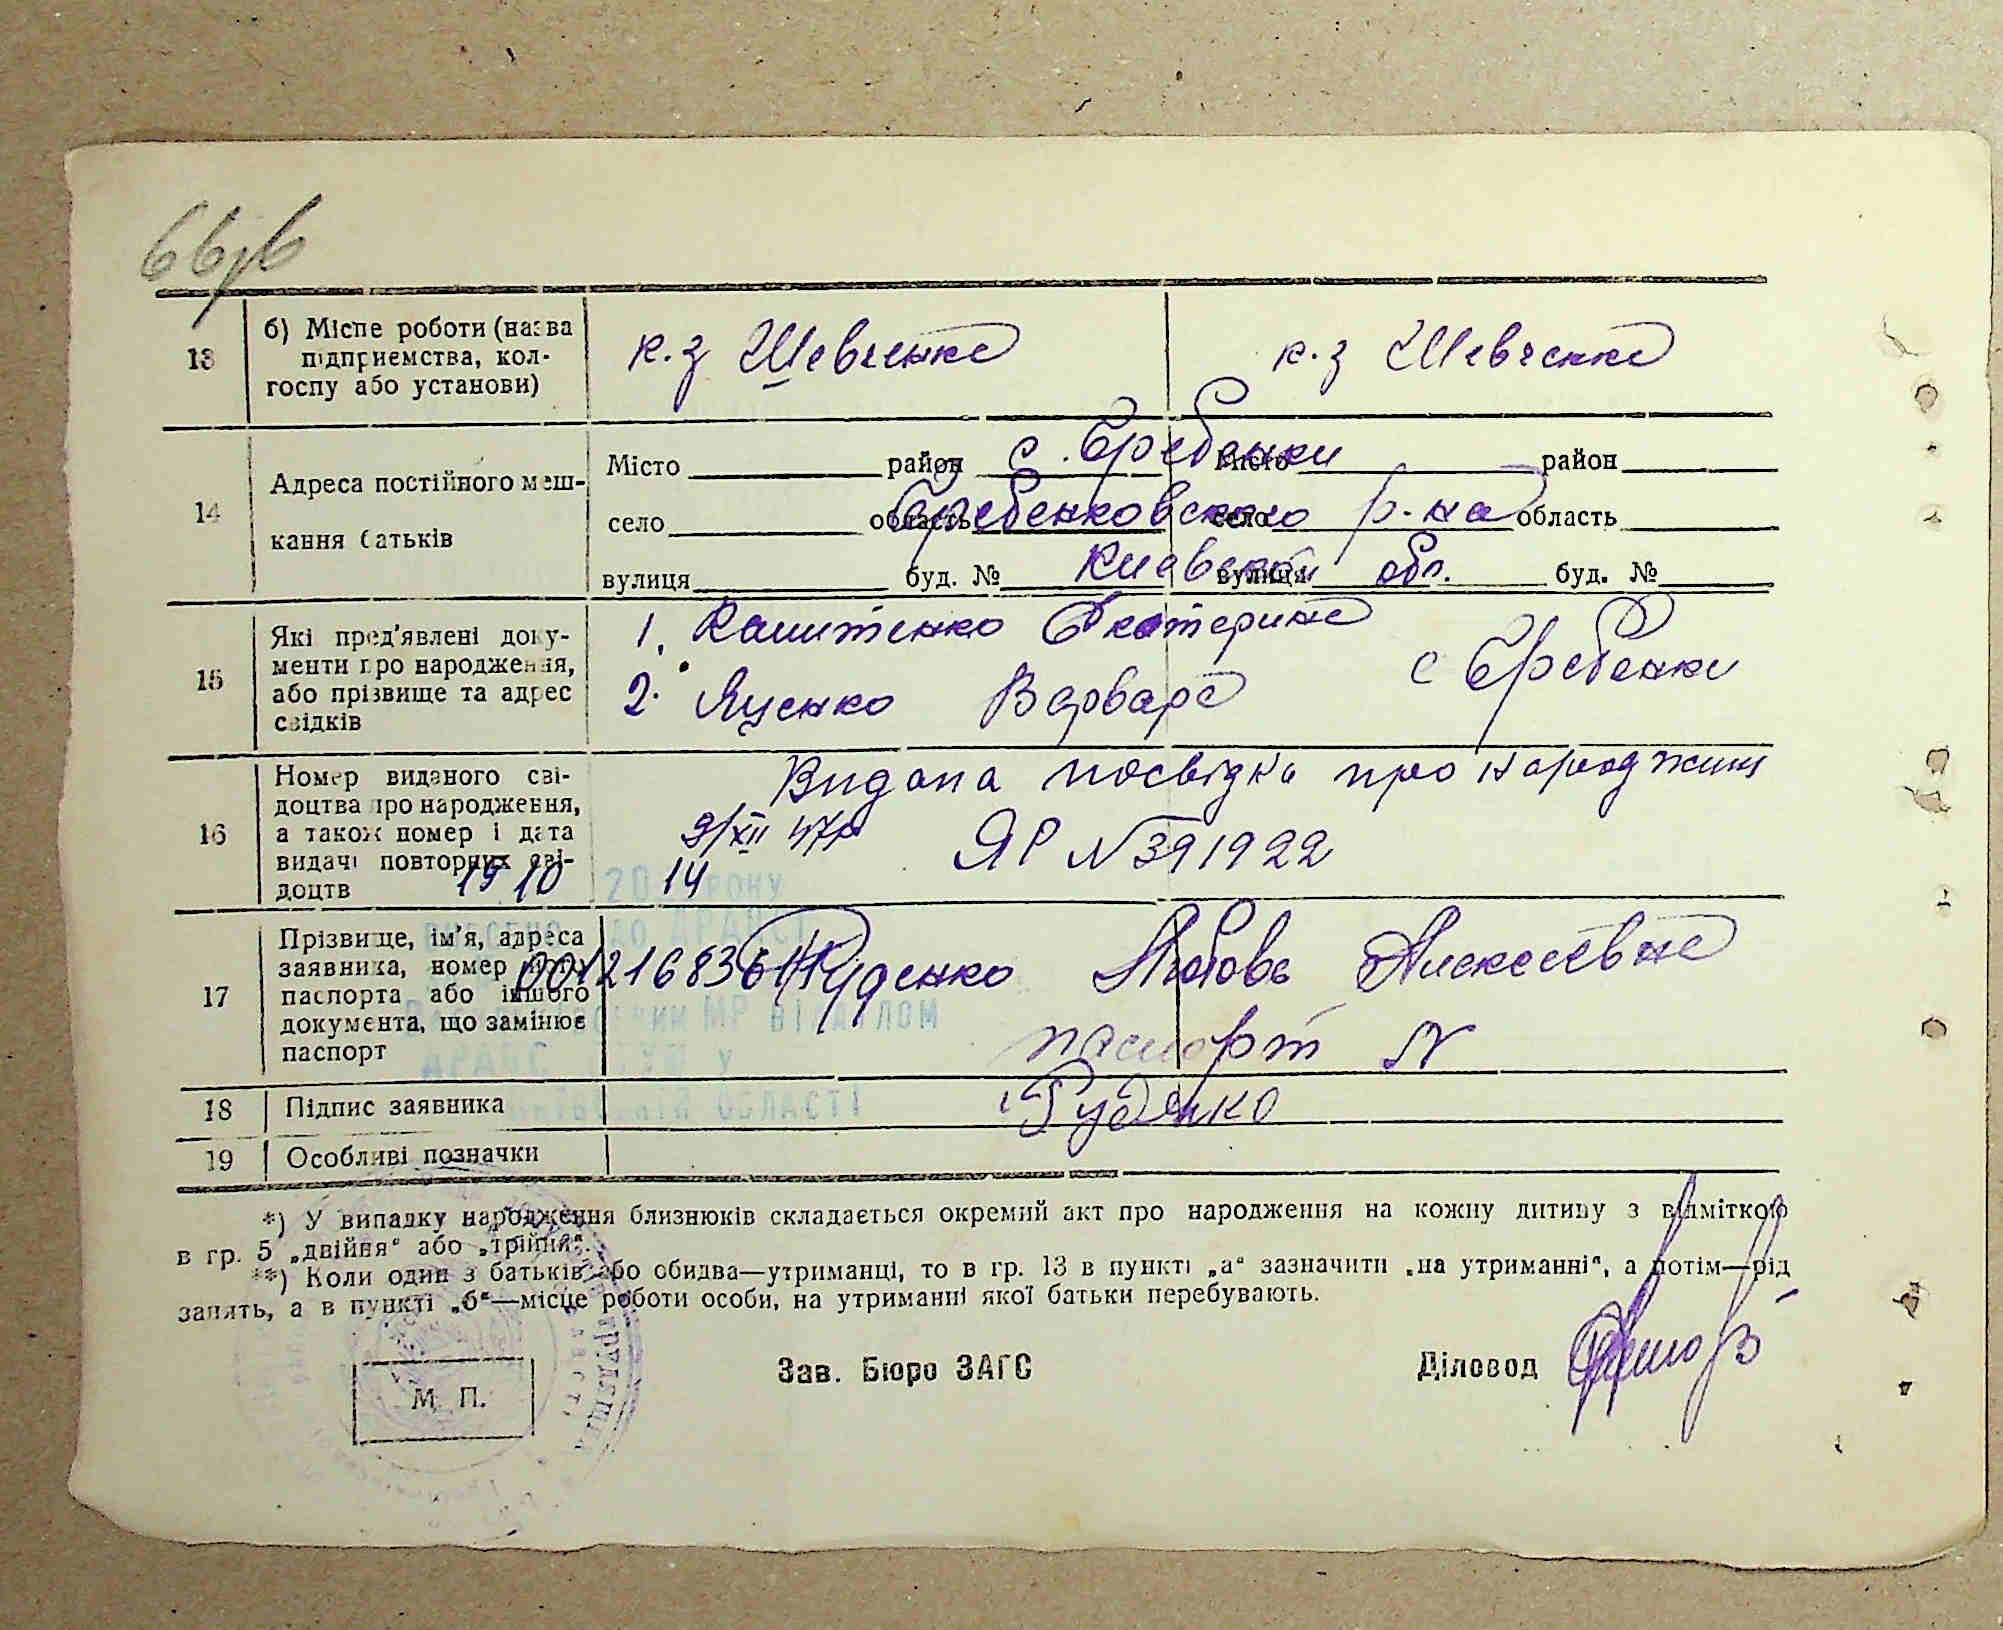 66/6
13
б) Місце роботи (назва
підприємства, кол-
госпу або установи)
к.з Шевченка
к.з Шевченка
14
Адреса постійного меш-
кання батьків
Місто район Місто район
село область село область
вулиця буд. № вулиця буд. №
с. Гребенки
Гребенковского р-на
Киевской обл.
15
Які пред'явлені доку-
менти про народження,
або прізвище та адрес
свідків
1. Екатерина
2. Яценко Варвара
с Гребенки
16
Номер виданого сві-
доцтва про народження,
а також номер і дата
видачі повторних сві-
доцтв
Видана посвідка про народження
9/XII 47р ЯР №391922
19 10 2014 РОКУ
ДО ДРАЦС
17
Прізвище, ім'я, адреса
заявника, номер його
паспорта або іншого
документа, що замінює
паспорт
00121683614 Руденко Любовь Алексеевна
МР ВІДДІЛОМ
паспорт №
У
18
Підпис заявника
Руденко
ОБЛАСТІ
19
Особливі позначки
*) У випадку народження близнюків складається окремий акт про народження на кожну дитину з відміткою
в гр. 5 „двійня" або „трійня".
**) Коли один з батьків або обидва—утриманці, то в гр. 13 в пункті „а" зазначити „на утриманні", а потім—рід
занять, а в пункті „б"—місце роботи особи, на утриманні якої батьки перебувають.
Зав. Бюро ЗАГС
Діловод
М. П.